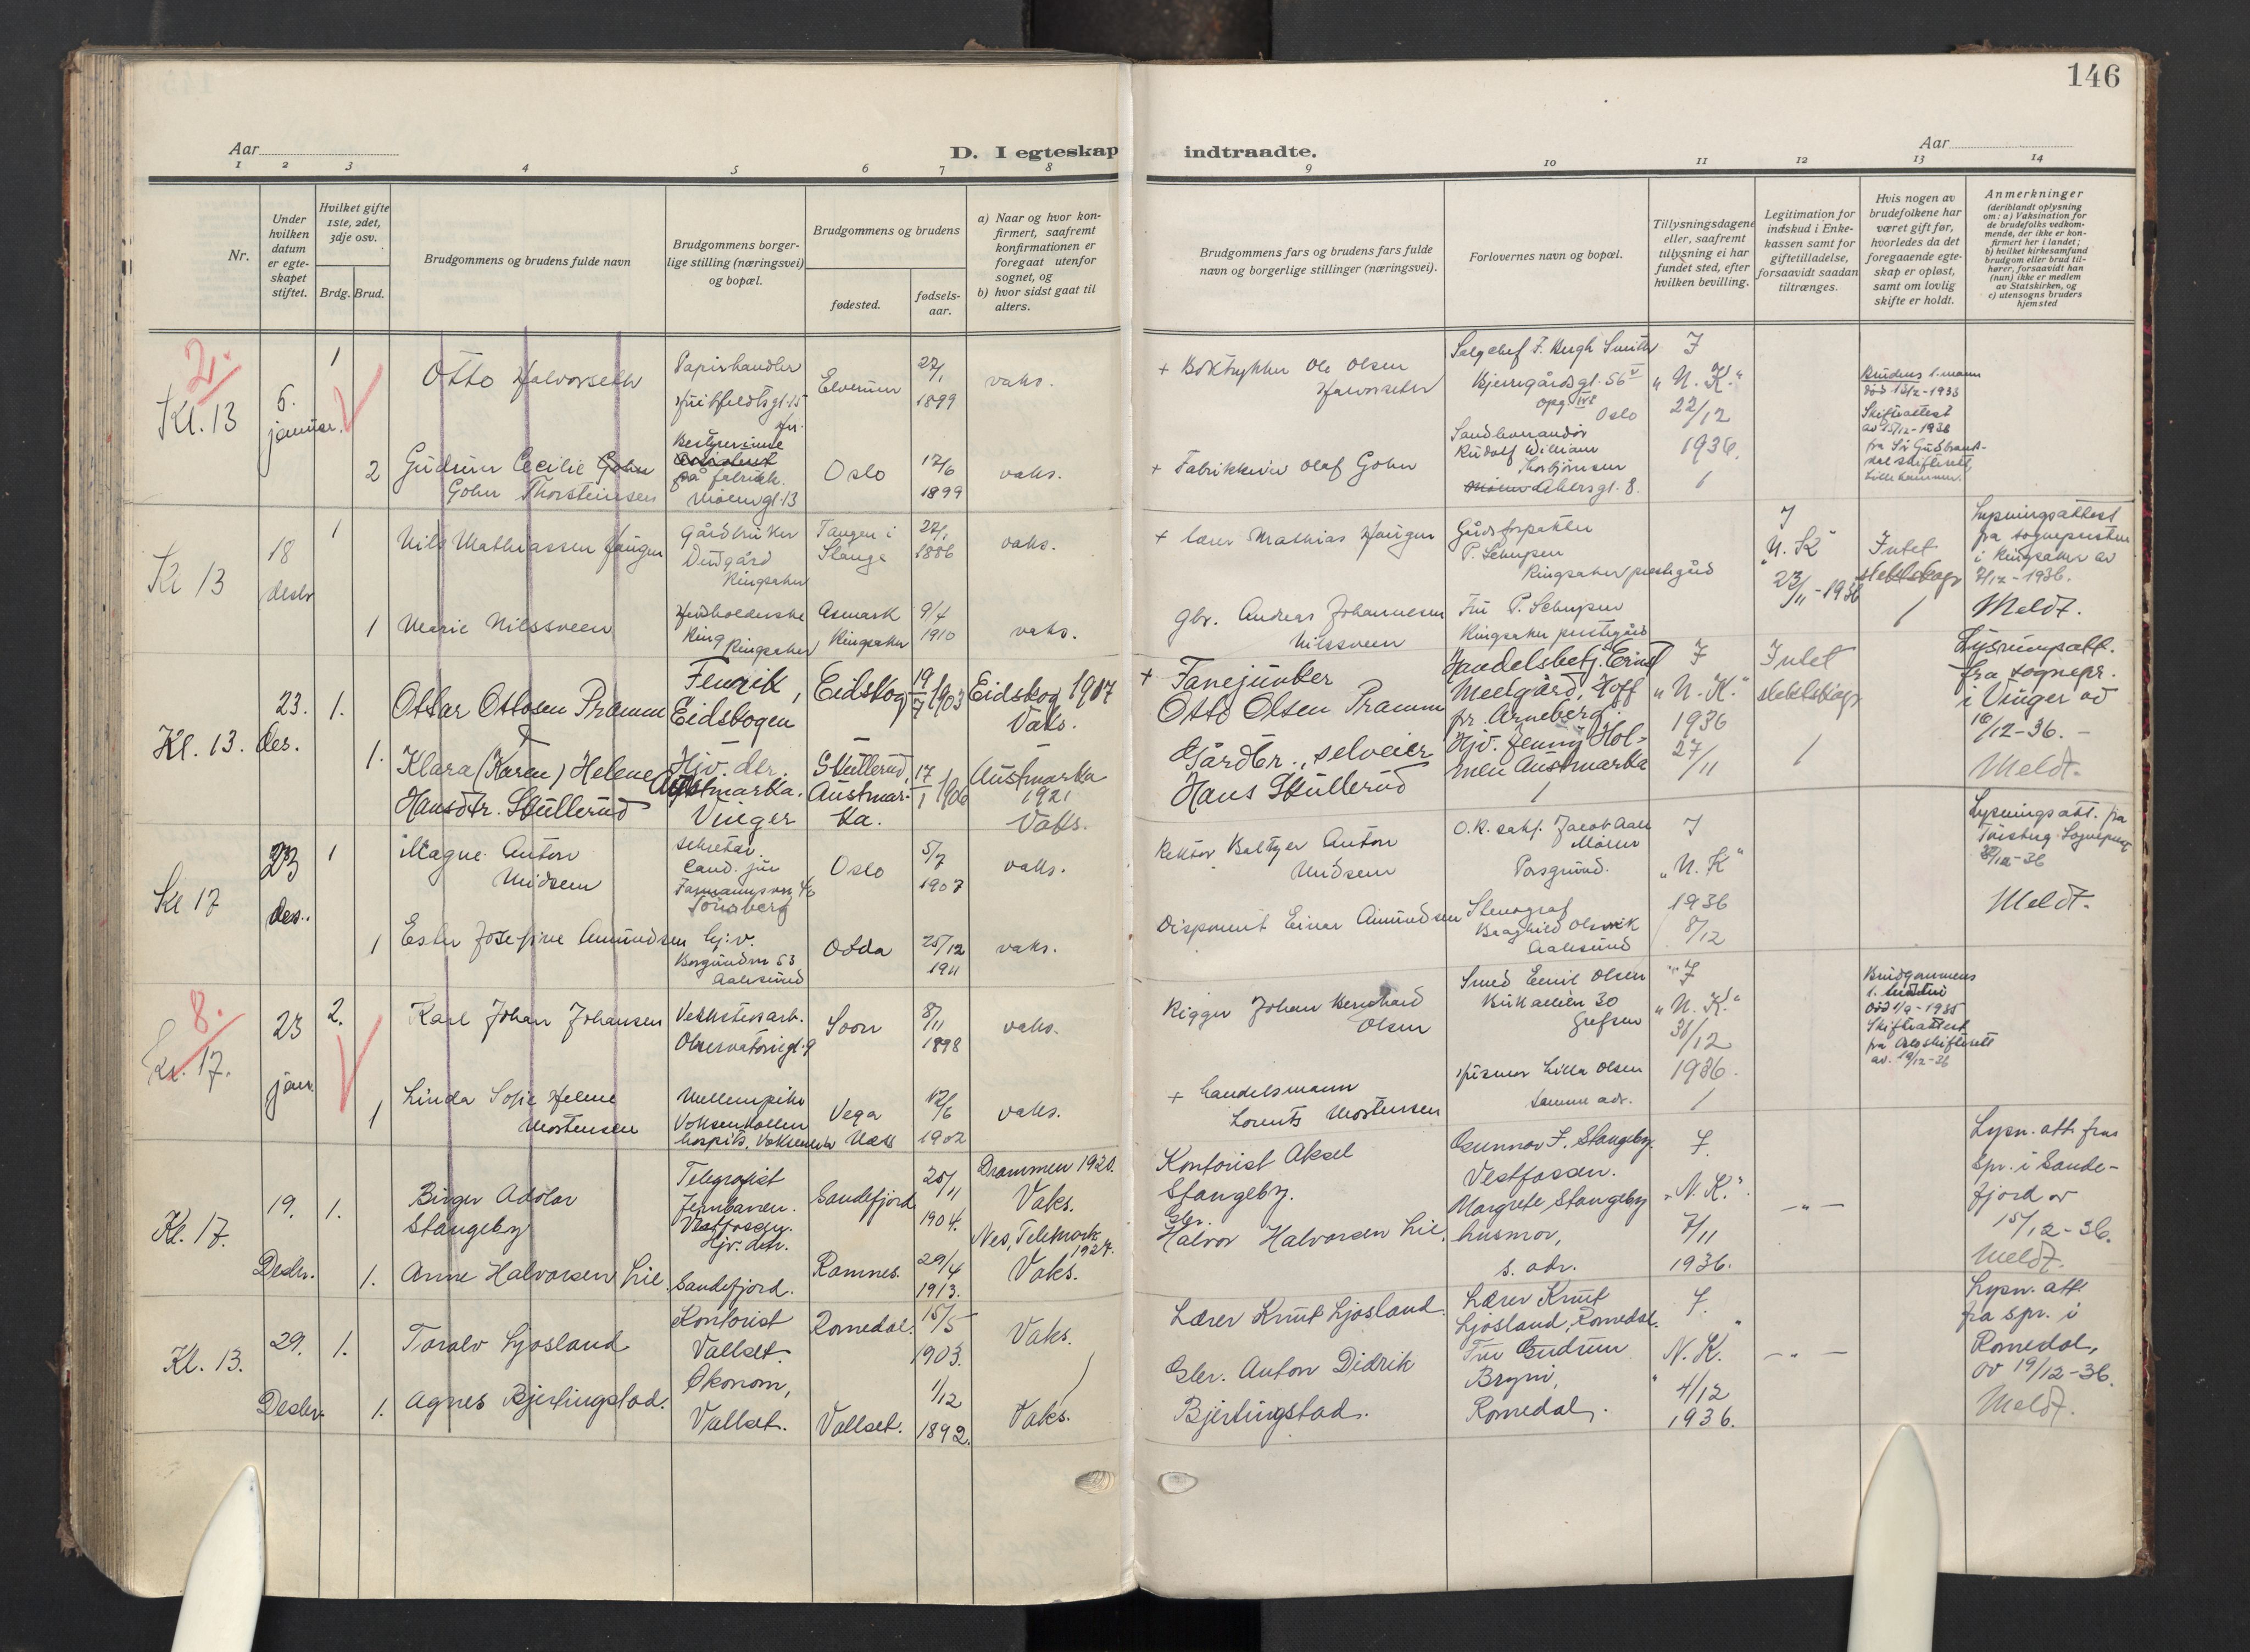 146
Aar
D. I egteskap indtraadte.
Aar
1 2 3 4 5 6 7 8 9 10 11 12 13 14
Nr.
Under hvilken datum er egteskapet stiftet.
Hvilket gifte 1ste, 2det, 3dje osv.
Brdg. Brud.
Brudgommens og brudens fulde navn
Brudgommens borgerlige stilling (næringsvei) og bopæl.
Brudgommens og brudens
fødested.
fødselsaar.
a) Naar og hvor konfirmert, saafremt konfirmationen er foregaat utenfor sognet, og
b) hvor sidst gaat til alters.
Brudgommens fars og brudens fars fulde navn og borgerlige stillinger (næringsvei).
Forlovernes navn og bopæl.
Tillysningsdagene eller, saafremt tillysning ei har fundet sted, efter hvilken bevilling.
Legitimation for indskud i Enkekassen samt for giftetilladelse, forsaavidt saadan tiltrænges.
Hvis nogen av brudefolkene har været gift før, hvorledes da det foregaaende egteskap er opløst, samt om lovlig skifte er holdt.
Anmerkninger
(deriblandt oplysning om: a) Vaksination for de brudefolks vedkommende, der ikke er konfirmert her i landet; b) hvilket kirkesamfund brudgom eller brud tilhører, forsaavidt han (hun) ikke er medlem av Statskirken, og c) utensogns bruders hjemsted
2.
Kl. 13
6. januar.
1
Otto Halvorseth
Papirhandler
Huitfeldtsgt. 15
Elverum
27/1 1899
vaks.
+ Boktrykker Ole Olsen Halvorseth
Salgchef F. Bergh Smith
Bjerregårdsgt. 56
Oslo
"N. K."
22/12
1936.
Brudens 1. mann
død 13/2-1935
Skifteattest
av 15/12-1936
fra Sør Gudbrandsdal skifterett,
Lillehammer.
2
Gudrun Cecilie
Gohn Thorsteinsen
Bestyrerinne
på fabrikk.
Oslo
17/6 1899
vaks.
+ Fabrikkeier Olaf Gohn
Rudolf William
Thorbjørnsen
Akersgt. 8.
Kl 13
18 desbr
1
Nils Mathiassen Haugen
Gårdbruker
Ringsaker
Tangen i Stange
27/1 1886
vaks.
+ lærer Mathias Haugen
P. Schujsen
Ringsaker prestegård
"N. K"
23/11-1936
Intet slektskap
Lysningsattest
fra sognepresten
i Ringsaker av
7/12-1936.
Meldt.
1
Marie Nilssveen
Husholderske
Ring Ringsaker
Asmark Ringsaker
9/4 1910
vaks.
gbr. Andreas Johannesen Nilssveen
Fru P. Schujsen
Ringsaker prestegård
Kl. 13.
23. des.
1.
Ottar Ottosen Pramm
Fenrik,
Eidskogen
Eidskog
19/7 1903
Eidskog 1917
Vaks.
+ Fanejunker
Otto Olsen Pramm
Handelsbetj. Ernst
Melgård, Hoff
pr. Arneberg.
"N. K."
1936
27/11
Intet
slektskap
Lysningsatt.
fra sognepr.
i Vinger av
16/12-36. -
Meldt.
1.
Klara (Karen) Helene
Hansdtr. Skullerud
Hjv. dtr.
Austmarka.
Vinger
Skullerud, Austmarka.
17/1 1906
Austmarka
1921
Vaks.
Gårdbr., selveier
Hans Skullerud
Hjv. Jenny Holmen Austmarka
Kl 17
23 des.
1
Magne Anton
Midsem
sekretær
Cand. jur
Tønsberg
Oslo
5/7 1907
vaks.
Rektor Baltzer Anton
Midsem
O.R. sakf. Jacob Aall
Møller
Porsgrund.
"N. K"
1936
8/12
Lysningsatt. fra
Tønsberg Sogneprest
-36
Meldt.
1
Ester Josefine Amundsen
hj.v.
Borgundvn 53
Aalesund
Odda
25/12 1911
vaks.
Disponent Einar Amundsen
Stenograf
Olsvik
Aalesund
8.
Kl. 17.
23 jan.
2.
Karl Johan Johansen
Verkstedsarb.
Observatoriegt. 9
Soon
8/11 1898
vaks.
Rigger Johan Bernhard
Olsen
Smed Emil Olsen
Birkaleen 30
Grefsen
"N. K."
31/12
1936.
Brudgommens
1. hustru
død 1/9-1935
Skifteattest
fra Oslo skifterett
av. 19/12-36
1
Linda Sofie Helene
Mortensen
Mellempike
Voksenkollen
hospits,
Vega
1902
vaks.
+ handelsmann
Lorents Mortensen
Husmor Lilla Olsen
samme adr.
Kl. 17.
19. Desbr.
1.
Birger Adolar
Stangeby
Telegrafist
Jernbanen.
Vestfossen.
Sandefjord
25/11 1904.
Drammen 1920.
Vaks.
Kontorist Aksel
Stangeby.
Gunnar F. Stangeby.
Vestfossen.
Margrete Stangeby
husmor,
s. adr.
"N. K."
7/11
1936.
- " -
Lysn. att. fra
spr. i Sandefjord av
15/12-36.
Meldt.
1.
Anne Halvorsen Lie.
Hjv. dtr.
Sandefjord.
Ramnes.
29/4 1913.
Nes, Telemark
1927.
Vaks.
Gbr.
Halvor Halvorsen Lie.
Kl. 13.
29. Desbr.
1.
Toralv Ljosland
Kontorist
Vallset.
Romedal.
15/5 1903.
Vaks.
Lærer Knut Ljosland.
Lærer Knut
Ljosland, Romedal.
N. K.
4/12
1936.
- " -
Lysn. att.
fra spr. i
Romedal,
av 19/12-36.
Meldt.
1.
Agnes Bjertingstad.
Økonom,
Vallset.
Vallset.
1/12 1892.
Vaks.
Gbr. Anton Didrik
Bjertingstad.
Fru Gudrun
Bryni,
Romedal.